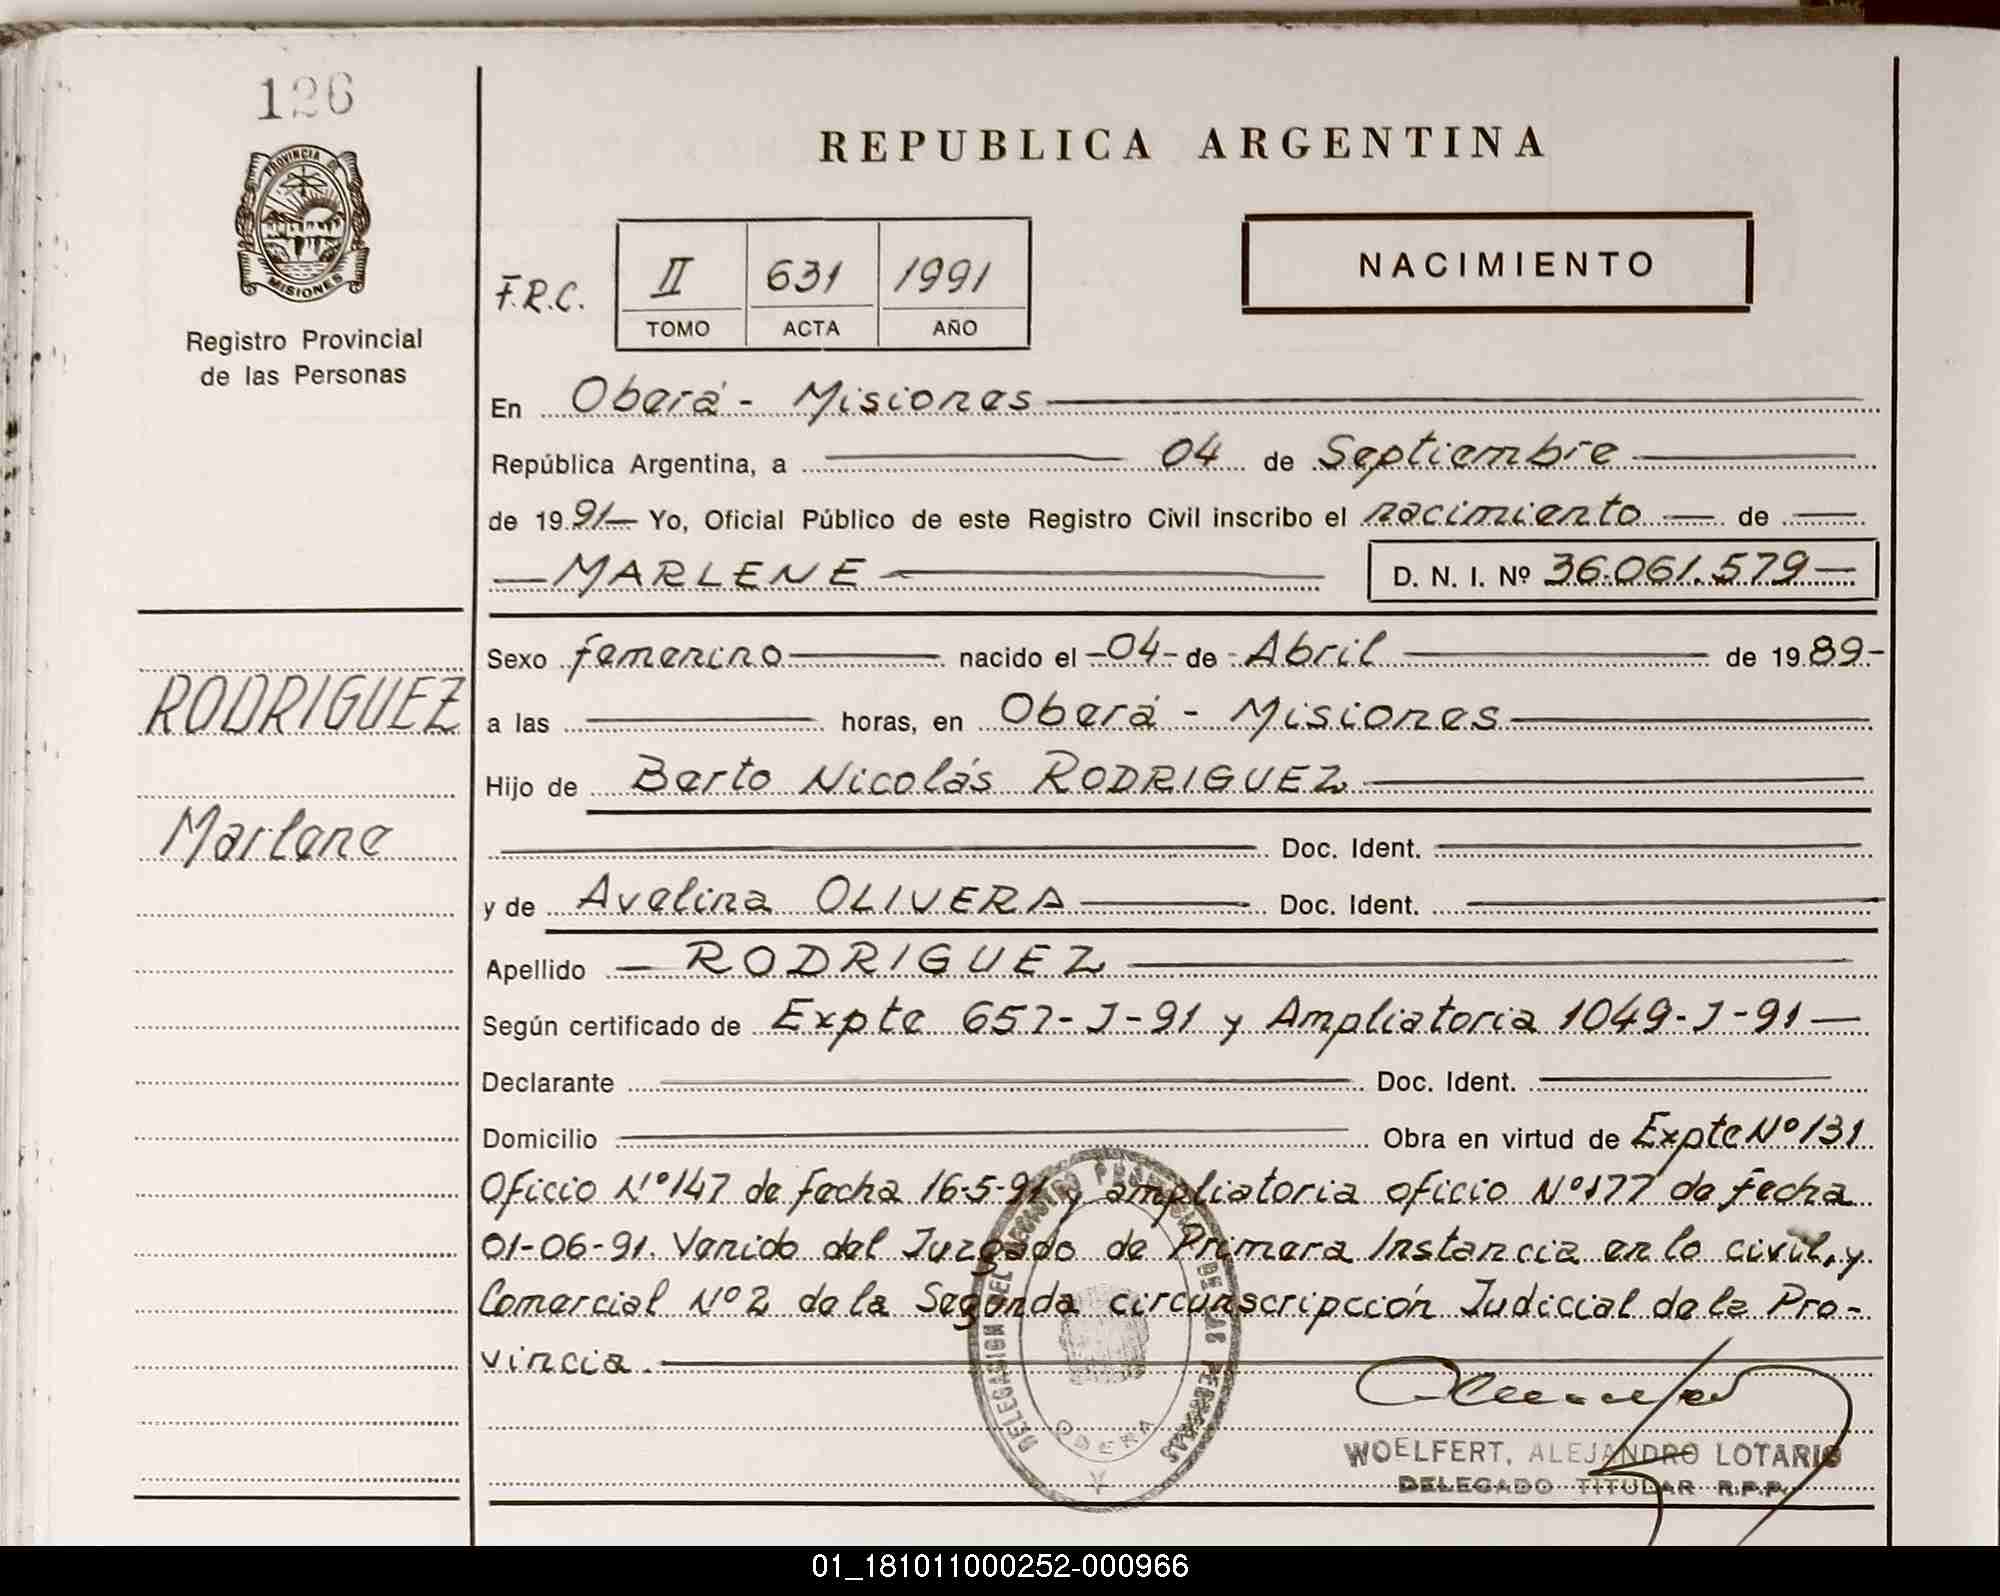 126
PROVINCIA DE
MISIONES
Registro Provincial
de las Personas
RODRIGUEZ
Marlene
REPUBLICA ARGENTINA
F.R.C. II 631 1991
TOMO ACTA AÑO
NACIMIENTO
En Oberá - Misiones
República Argentina, a 04 de Septiembre
de 1991 Yo, Oficial Público de este Registro Civil inscribo el nacimiento de
MARLENE D. N. I. Nº 36.061.579
Sexo femenino nacido el 04 de Abril de 1989
a las horas, en Oberá - Misiones
Hijo de Berto Nicolás RODRIGUEZ
Doc. Ident.
y de Avelina OLIVERA Doc. Ident.
Apellido RODRIGUEZ
Según certificado de Expte 657-J-91 y Ampliatoria 1049-J-91
Declarante Doc. Ident.
Domicilio Obra en virtud de Expte Nº 131
Oficio Nº 147 de fecha 16-5-91 y ampliatoria oficio Nº 177 de fecha
01-06-91. Venido del Juzgado de Primera Instancia en lo civil, y
Comercial Nº 2 de la Segunda circunscripcción Judicial de la Pro-
vincia.
DELEGACION DEL REGISTRO PROVINCIAL DE LAS PERSONAS
OBERA
WOELFERT, ALEJANDRO LOTARIO
DELEGADO TITULAR R.P.P.
01_181011000252-000966